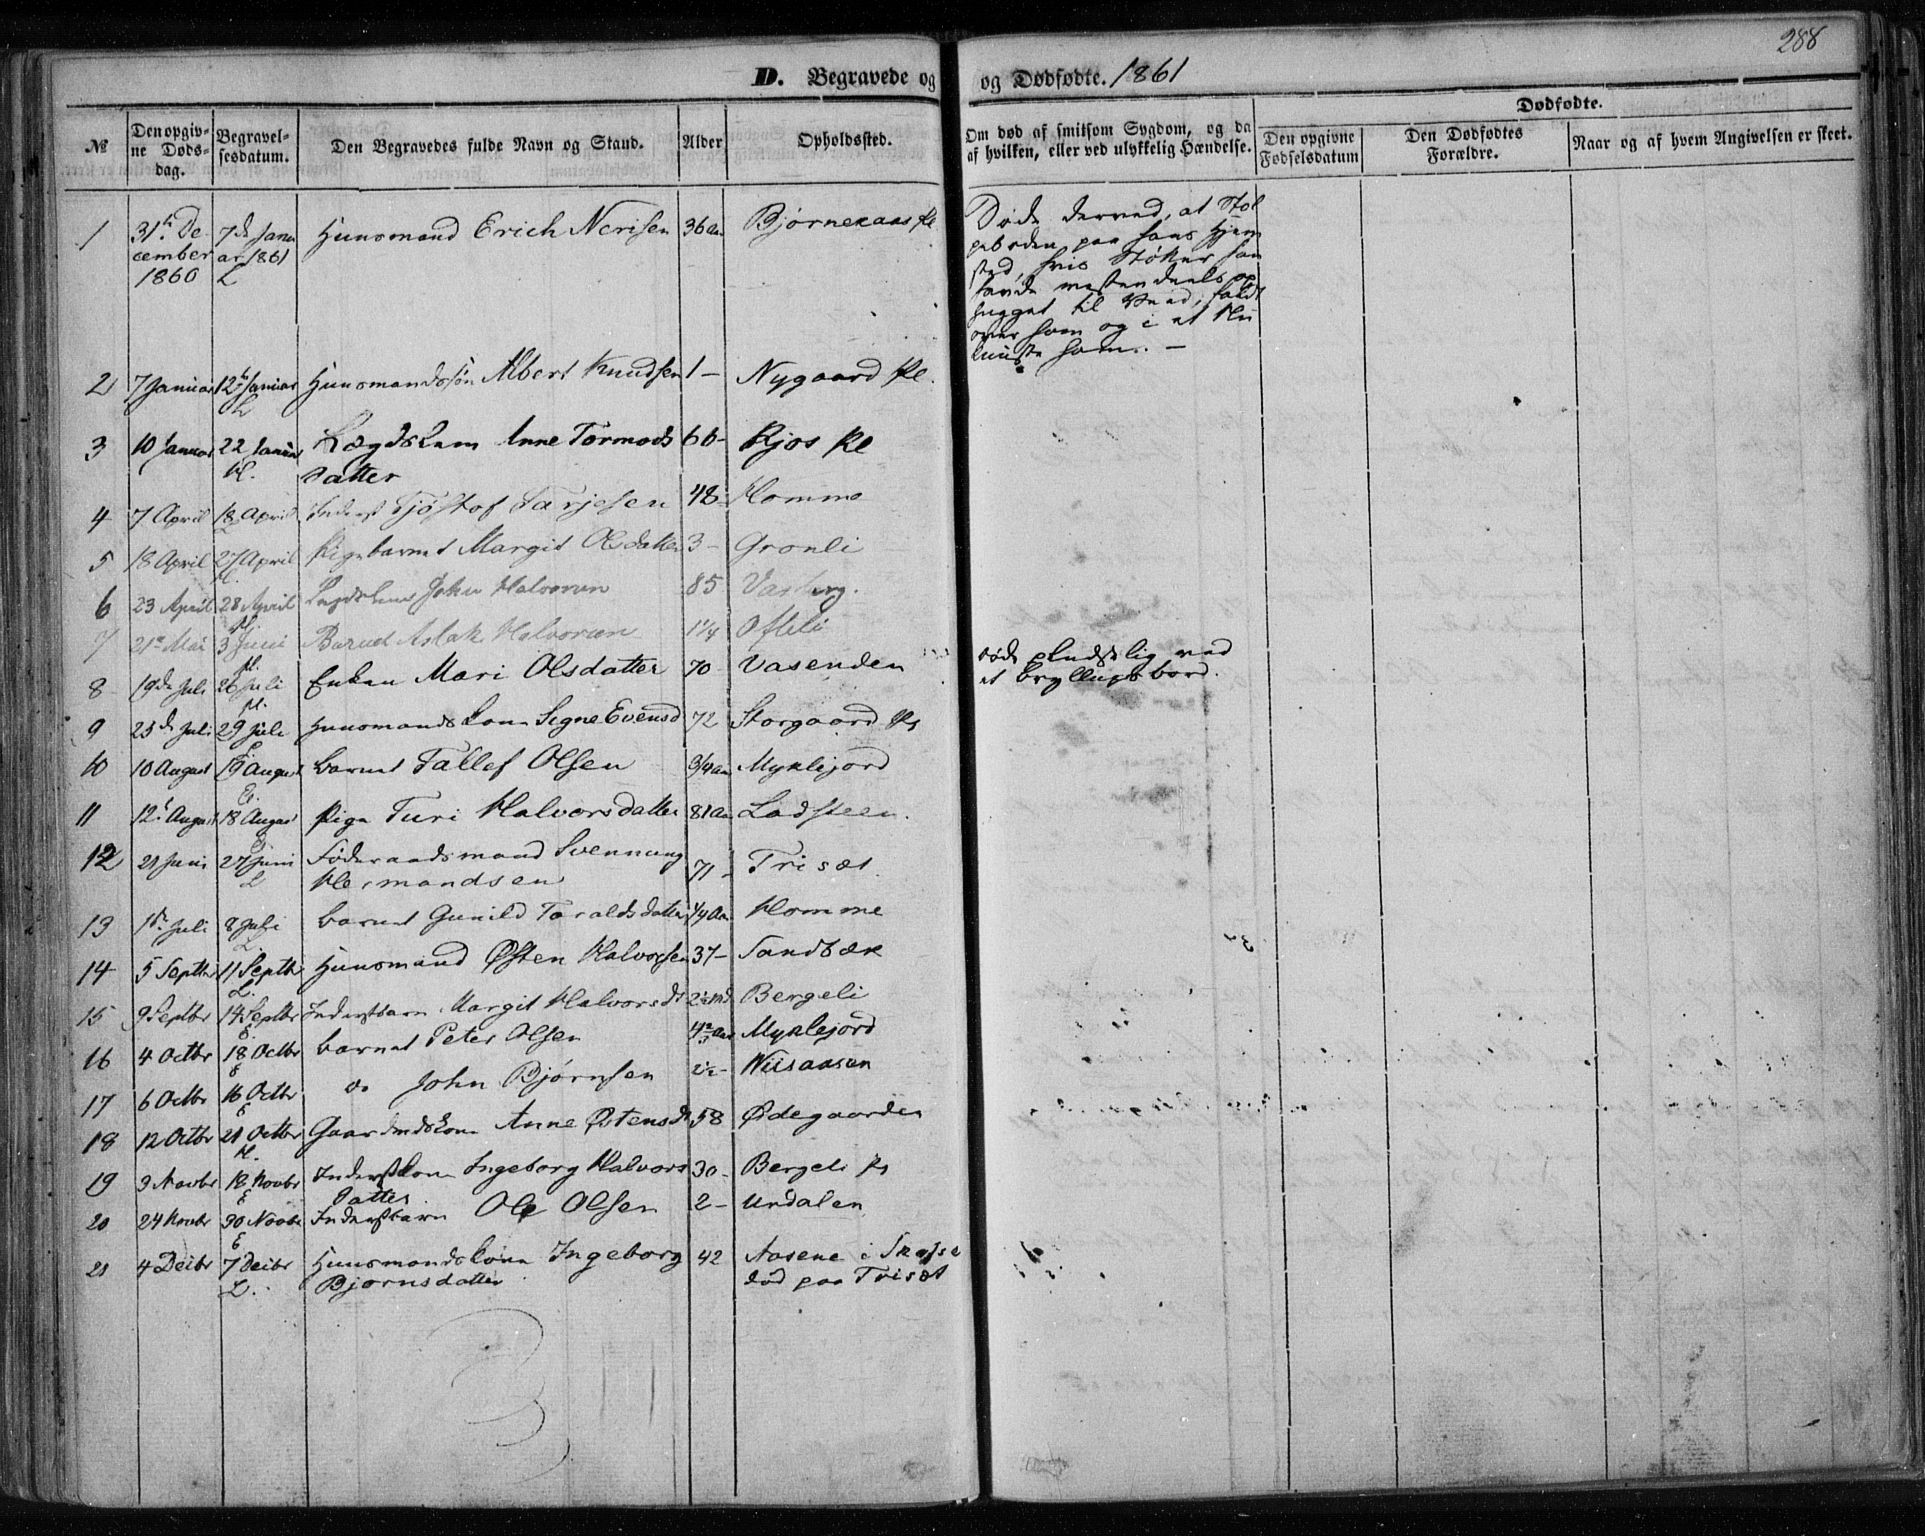 288
D. Begravede og og Dødfødte. 1861
Dødfødte.
№ Den opgivne Døds-dag. Begravelsesdatum. Den Begravedes fulde Navn og Stand. Alder Opholdssted. Om død af smitsom Sygdom, og da af hvilken, eller ved ulykkelig Hændelse. Den opgivne Fødselsdatum Den Dødfødtes Forældre. Naar og af hvem Angivelsen er skeet.
1 31te December 1860 7de Januar 1861 L Huusmand Erich Nerisen 36 Aar Bjørnekaas Pl
Døde derved, at Stol
peboden paa hans Hjem
sted, hvis Støtter han
havde mestendeels op
hugget til Veed, faldt
over ham og
ham. —
2 7 Januar 12te Januar L Huusmandssøn Albert Knudsen 1 – Nygaard Pl.
3 10 Januar 22 Januar H. Lægdslem Anne Tormods 66 – Kjos Pl
datter
4 7 April 18 April L Inderst Tjøstof Tarjesen 48 – Homme
5 18 April 27 April H. Pigebarnet Margit Olsdatter 3 – Grønli
6 23 April 28 April H. Lægdslem John Halvorsen 85
7 21e Mai 3 Juni H. Barnet Aslak Halvorsen 1 1/4 Ofteli
8 19de Juli 26 Juli H. Enken Mari Olsdatter 70 – Vasenden døde pludselig ved
et Bryllupsbord.
9 23de Juli 29 Juli E. Huusmandskone Signe Evensd 72 Storgaard Pl
10 10 August 19 August E. Barnet Tallef Olsen 3/4 Aar Myklejord
11 12te August 18 August E Pige Turi Halvorsdatter 81 Aar Ladsteen.
12 21 Juni 27 Juni L Føderaadsmand Svennung 71 – Trisæt.
Hermandsen
13 1ste Juli 8 Juli L Barnet Gunild Taraldsdatter 1/4 Aar Homme
14 5 Septbr 11 Septbr L. Huusmand Østen Halvorsen 37 – Sandbæk
15 9 Septbr 14 Septbr E. Inderstbarn Margit Halvorsd 2 1/2 Md Bergeli
16 4 Octbr 18 Octbr E Barnet Peter Olsen 4 2/3 Aar Myklejord
17 6 Octbr 16 Octbr E do John Bjørnsen 2 1/2 – Niisaasen
18 12 Octbr 21 Octbr H. Gaardmdskone Anne Østensd 58 Ødegaarden
19 3 Novbr 18 Novbr E Inderstkone Ingeborg Halvors 30 – Bergeli Pl
datter
20 24 Novbr 30 Novbr E Inderstbarn Ole Olsen 2 – Urdalen
21 4 Decbr 7 Decbr L. Huusmandskone Ingeborg 42 Aasene i Skafse
Bjørnsdatter død paa Trisæt